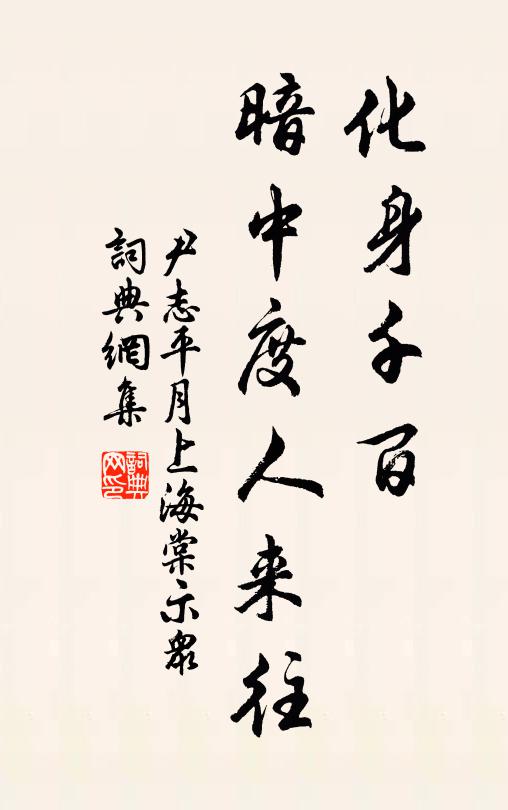 化身千百
暗中度人来往
尹志平月上海棠示衆
詞典網集
詞典
网印